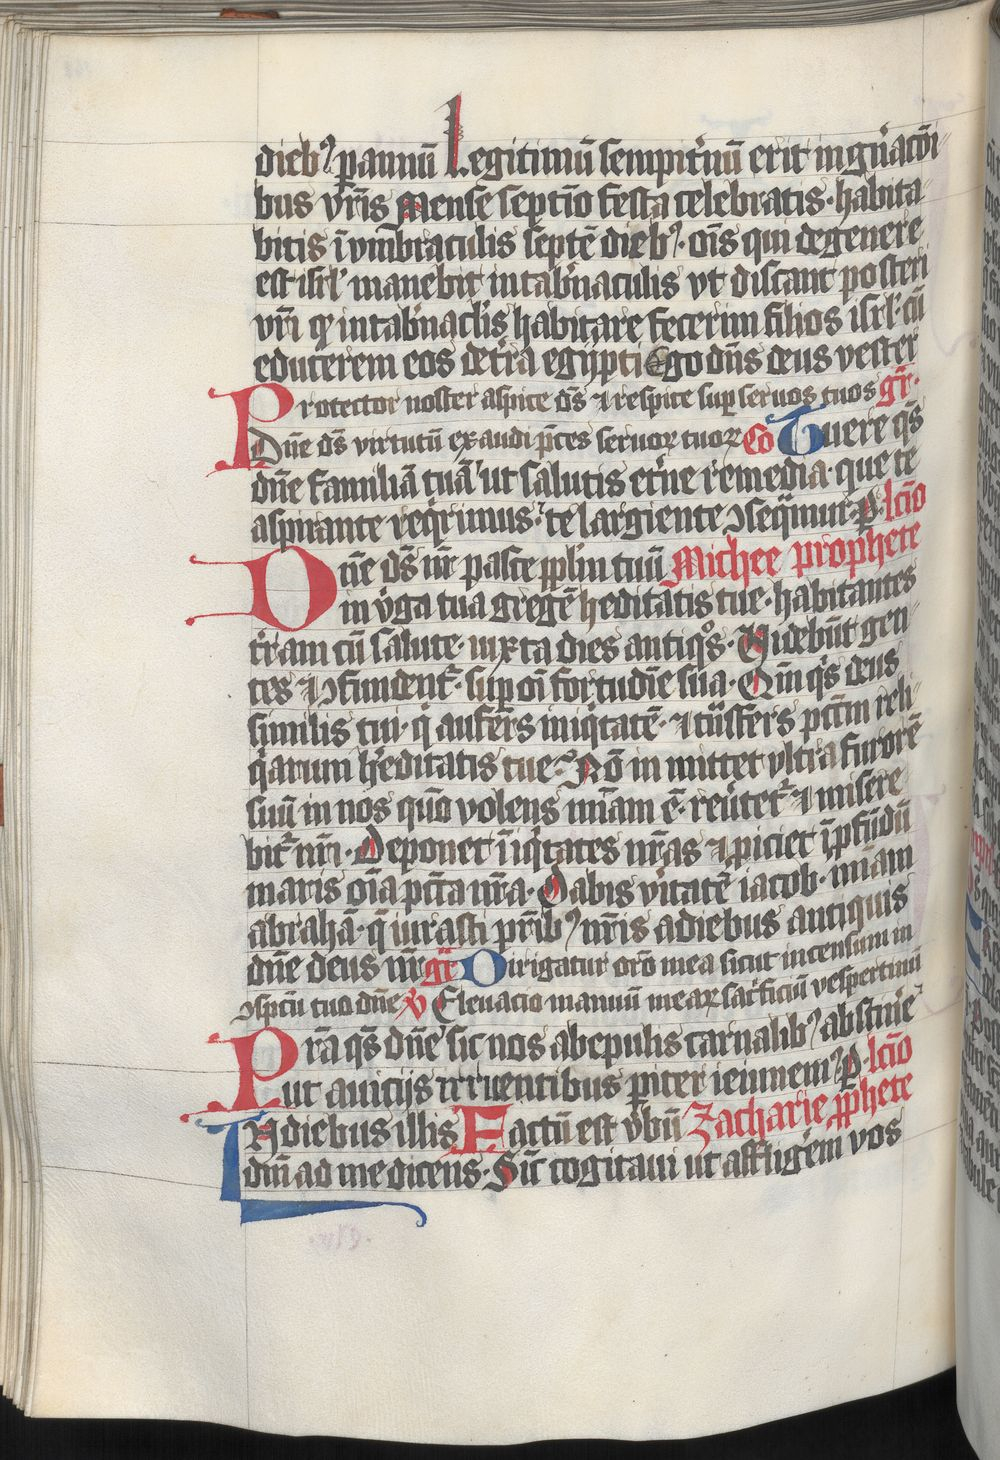 dieb⁹ p annuū Legitimū sempit'nū erit in gn'acōi
bus vr̄is Mense septīo festa celebratis· habita
bitis ī vmbraculis septē dieb⁹· oīs qui de genere
est isrl' manebit in tab'naculis vt discant posteri
vr̄i qr in tab'nacl'is habitare fecerim filios isrl'· cū
educerem eos de t'ra egipti Ego dn̄s deus vester
Protector noster aspice ds̄ ⁊ respice sup seruos tuos gr̄·
Dn̄e ds̄ virtutū exaudi p̄ces seruoꝝ tuoꝝ Cō Tuere qs̄
dn̄e familiā tuā ut salutis et'ne remedia· que te
aspirante reqrimus· te largiente ꝯseqmur· p· lcīo
Dn̄e ds̄ nr̄ pasce pplm tuū Michee prophete
in v'ga tua gregē heditatis tue· habitantes
t'ram cū salute· iuxta dies antiqos· Videbūt gen
tes ⁊ ꝯfundent'· sup oī fortitudīe sua· Quis deus
similis tui· q aufers iniqtatē· ⁊ tn̄sfers pctm reli
qarum h'editatis tue· Nō in mittet vltra furorē
suū in nos quō volens mīam ē· reu'tet' ⁊ misere
bit' nr̄i· Deponet ī iqtates nr̄as ⁊ piciet ī pfūdū
maris oīa pctā nr̄a· Dabis v'itatē iacob· mīam
abrahā· q̄ iurasti pr̄ib⁹ nr̄is a diebus antiquis
dn̄e deus nr̄ gr̄ Dirigatur orō mea sicut incensum in
ꝯspcū tuo dn̄e ℣ Eleuacio manuū meaꝝ sac'ficiū vespertinū
Pra qs̄ dn̄e sic nos ab epulis carnalib⁹ abstin'e
ut a uicijs irruentibus pit'er ieiunem⁹ p· lcīo
In diebus illis Factū est v'bū Zacharie pphete
dn̄i ad me dicens· Sic' cogitaui ut affligerem vos